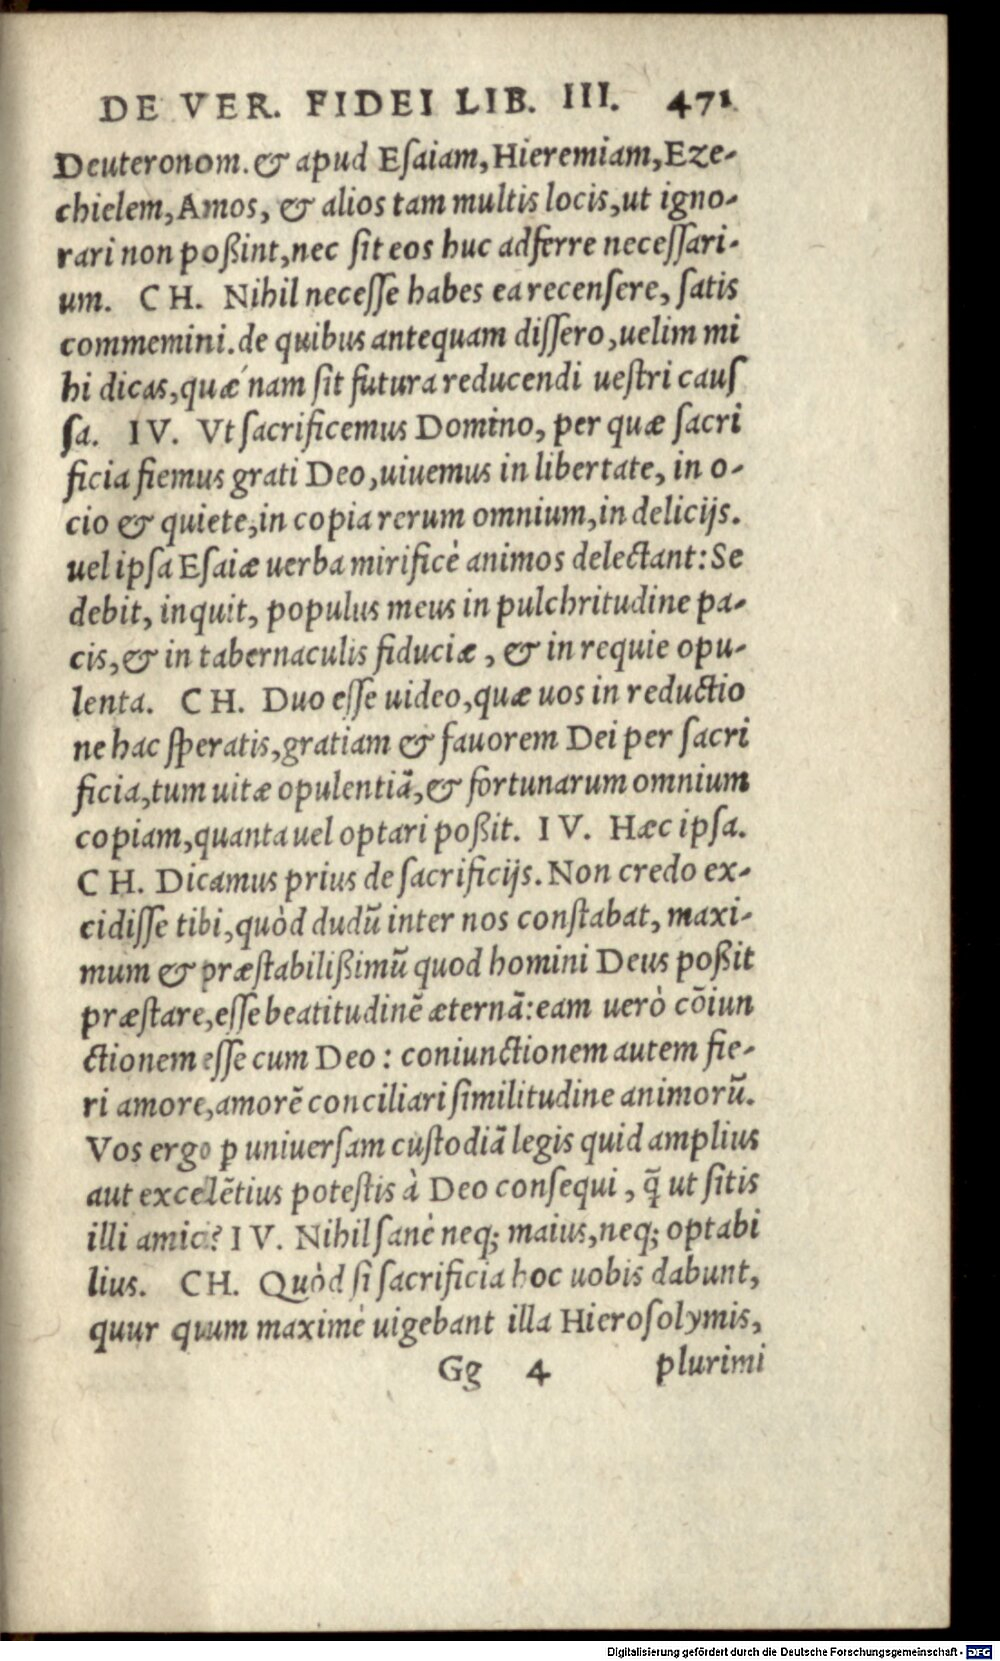 DE VER. FIDEI LIB. III. 471
Deuteronom. & apud Eſaiam, Hieremiam, Eze-
chielem, Amos, & alios tam multis locis, ut igno-
rari non poßint, nec ſit eos huc adferre neceſſari-
um. CH. Nihil neceſſe habes ea recenſere, ſatis
commemini. de quibus antequam diſſero, uelim mi
hi dicas, quæ nam ſit futura reducendi ueſtri cauſ
ſa. IV. Vt ſacrificemus Domino, per quæ ſacri
ficia fiemus grati Deo, uiuemus in libertate, in o-
cio & quiete, in copia rerum omnium, in delicijs.
uel ipſa Eſaiæ uerba mirificè animos delectant: Se
debit, inquit, populus meus in pulchritudine pa-
cis, & in tabernaculis fiduciæ, & in requie opu-
lenta. CH. Duo eſſe uideo, quæ uos in reductio
ne hac ſperatis, gratiam & fauorem Dei per ſacri
ficia, tum uitæ opulentiā, & fortunarum omnium
copiam, quanta uel optari poßit. IV. Hæc ipſa.
CH. Dicamus prius de ſacrificijs. Non credo ex-
cidiſſe tibi, quòd dudū inter nos conſtabat, maxi-
mum & præſtabilißimū quod homini Deus poßit
præſtare, eſſe beatitudinē æternā: eam uerò cōiun
ctionem eſſe cum Deo: coniunctionem autem fie-
ri amore, amorē conciliari ſimilitudine animorū.
Vos ergo ꝑ uniuerſam cuſtodiā legis quid amplius
aut excelētius poteſtis à Deo conſequi, q̄ ut ſitis
illi amici? IV. Nihil ſanè neq; maius, neq; optabi
lius. CH. Quòd ſi ſacrificia hoc uobis dabunt,
quur quum maximè uigebant illa Hieroſolymis,
Gg 4 plurimi
Digitalisierung gefördert durch die Deutsche Forschungsgemeinschaft - DFG